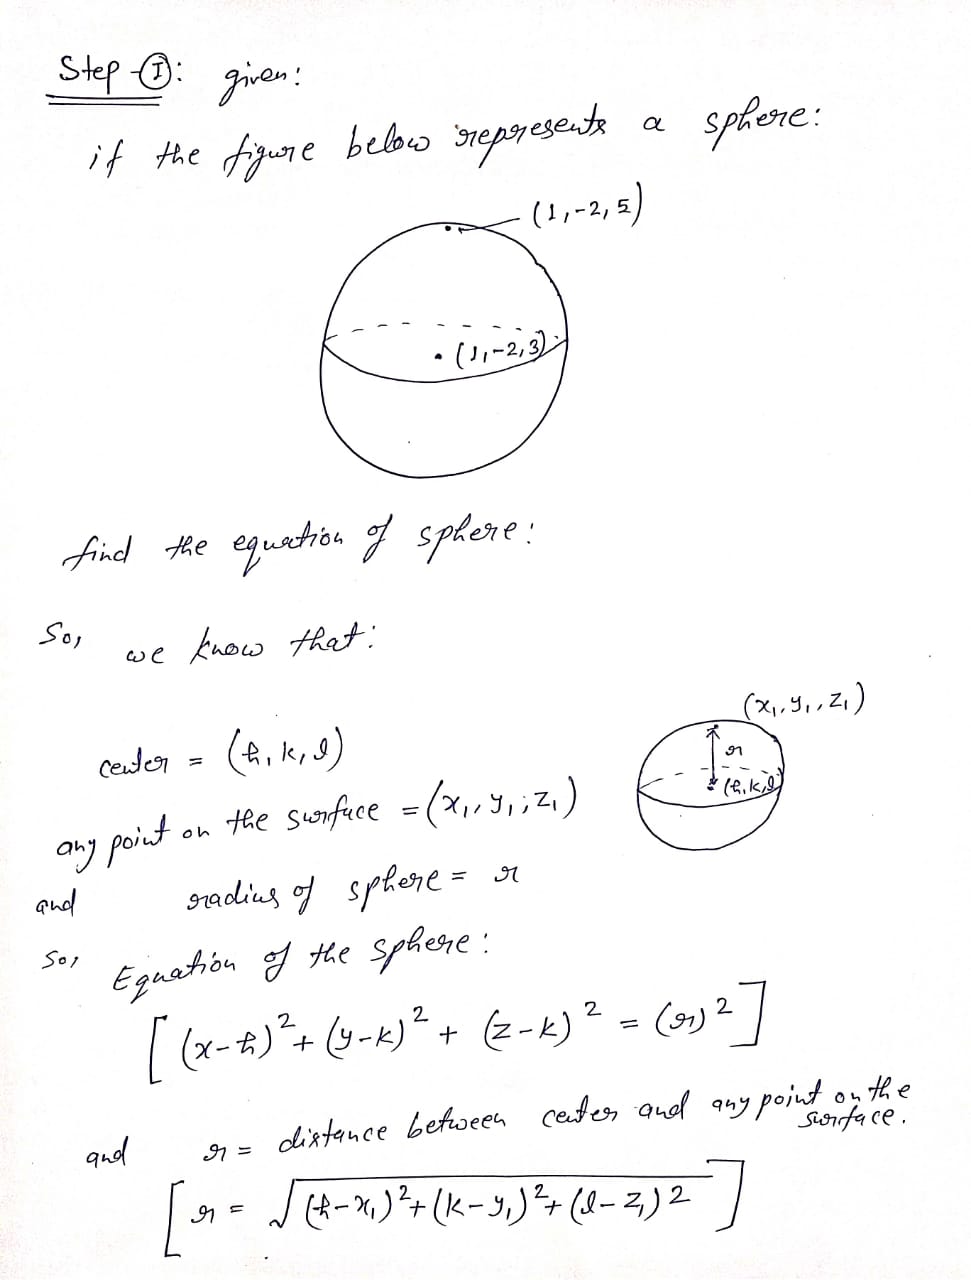 Step-Ⓘ: given:
if the figure below represents a sphere:
(1,-2,5)
(1,-2,3)
find the equation of sphere:
So, we know that:
(x₁, y₁, z₁)
center = (h, k, l)
r
(h,k,l)
any point on the surface = (x₁, y₁, z₁)
and radius of sphere = r
So, Equation of the sphere:
[(x-h)² + (y-k)² + (z-k)² = (r)²]
and r = distance between center and any point on the surface.
[r = √(h-x₁)² + (k-y₁)² + (l-z₁)²]